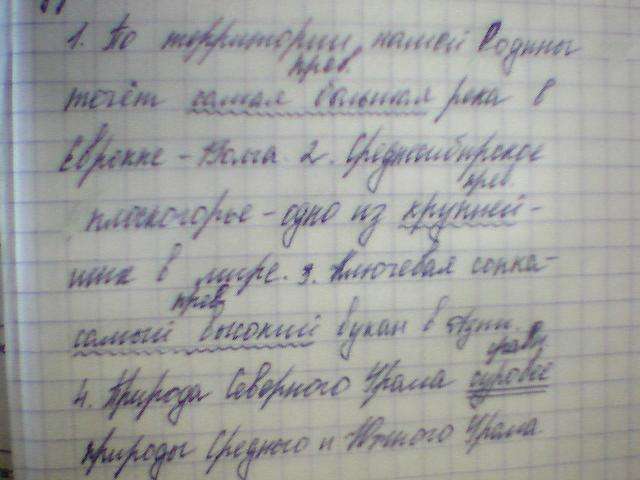 1. По территории нашей Родины
прев.
течёт самая большая река в
Европе - Волга. 2. Среднесибирское
прев.
плоскогорье - одно из крупней-
ших в мире. 3. Ключевая сопка -
прев.
самый высокий вукан в Азии.
4. Природа Северного Урала суровее
природы Среднего и Южного Урала